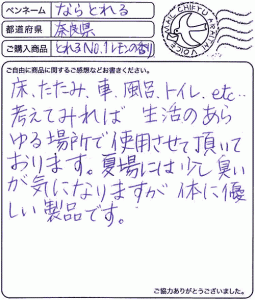 ペンネーム ならとれる
都道府県 奈良県
ご購入商品 とれるNO.1レモンの香り
MAIL CHIFFU ARATAMI VOICE
ご自由に商品に関するご感想などお書きください。
床、たたみ、車、風呂、トイレ、etc…
考えてみれば 生活のあら
ゆる場所で使用させて頂いて
おります。夏場には少し臭い
が気になりますが 体に優
しい製品です。
ご協力ありがとうございました。